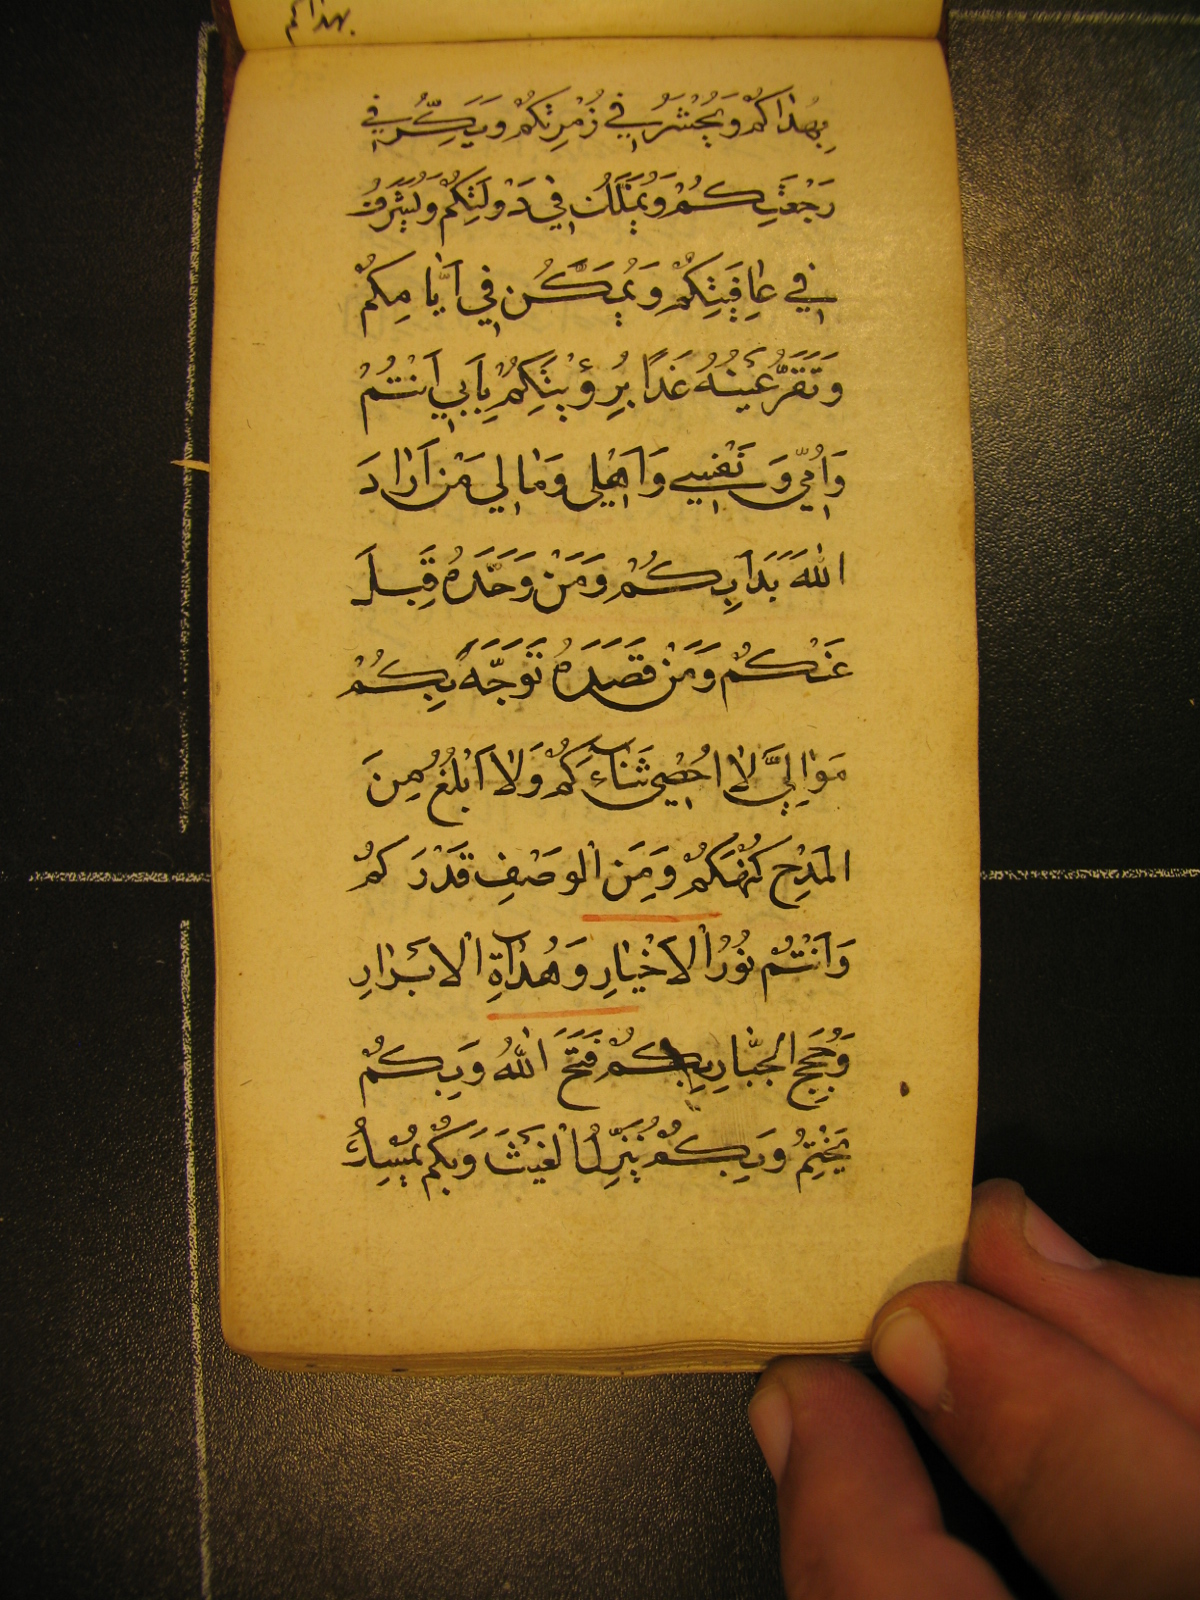 بهذاكم
بِهُدٰاكُمْ وَيُحْشَرُ فِي زُمْرَتِكُمْ وَيَكِرُّ فِي
رَجْعَتِكُمْ وَيُمَلَّكُ فِي دَوْلَتِكُمْ وَيُشَرَّفُ
فِي عٰافِيَتِكُمْ وَيُمَكَّنُ فِي اَيّٰامِكُمْ
وَتَقَرُّ عَيْنُهُ غَدًا بِرُؤْيَتِكُمْ بِاَبِي اَنْتُمْ
وَاُمِّي وَنَفْسِي وَاَهْلِي وَمٰالِي مَنْ اَرٰادَ
اللّٰهَ بَدَاَ بِكُمْ وَمَنْ وَحَّدَهُ قَبِلَ
عَنْكُمْ وَمَنْ قَصَدَهُ تَوَجَّهَ بِكُمْ
مَوٰالِيَّ لٰا اُحْصِي ثَنٰاءَكُمْ وَلٰا اَبْلُغُ مِنَ
الْمَدْحِ كُنْهَكُمْ وَمِنَ الْوَصْفِ قَدْرَكُمْ
وَاَنْتُمْ نُورُ الْاَخْيٰارِ وَهُدٰاةِ الْاَبْرٰارِ
وَحُجَجِ الْجَبّٰارِ بِكُمْ فَتَحَ اللّٰهُ وَبِكُمْ
يَخْتِمُ وَبِكُمْ يُنَزِّلُ الْغَيْثَ وَبِكُمْ يُمْسِكُ